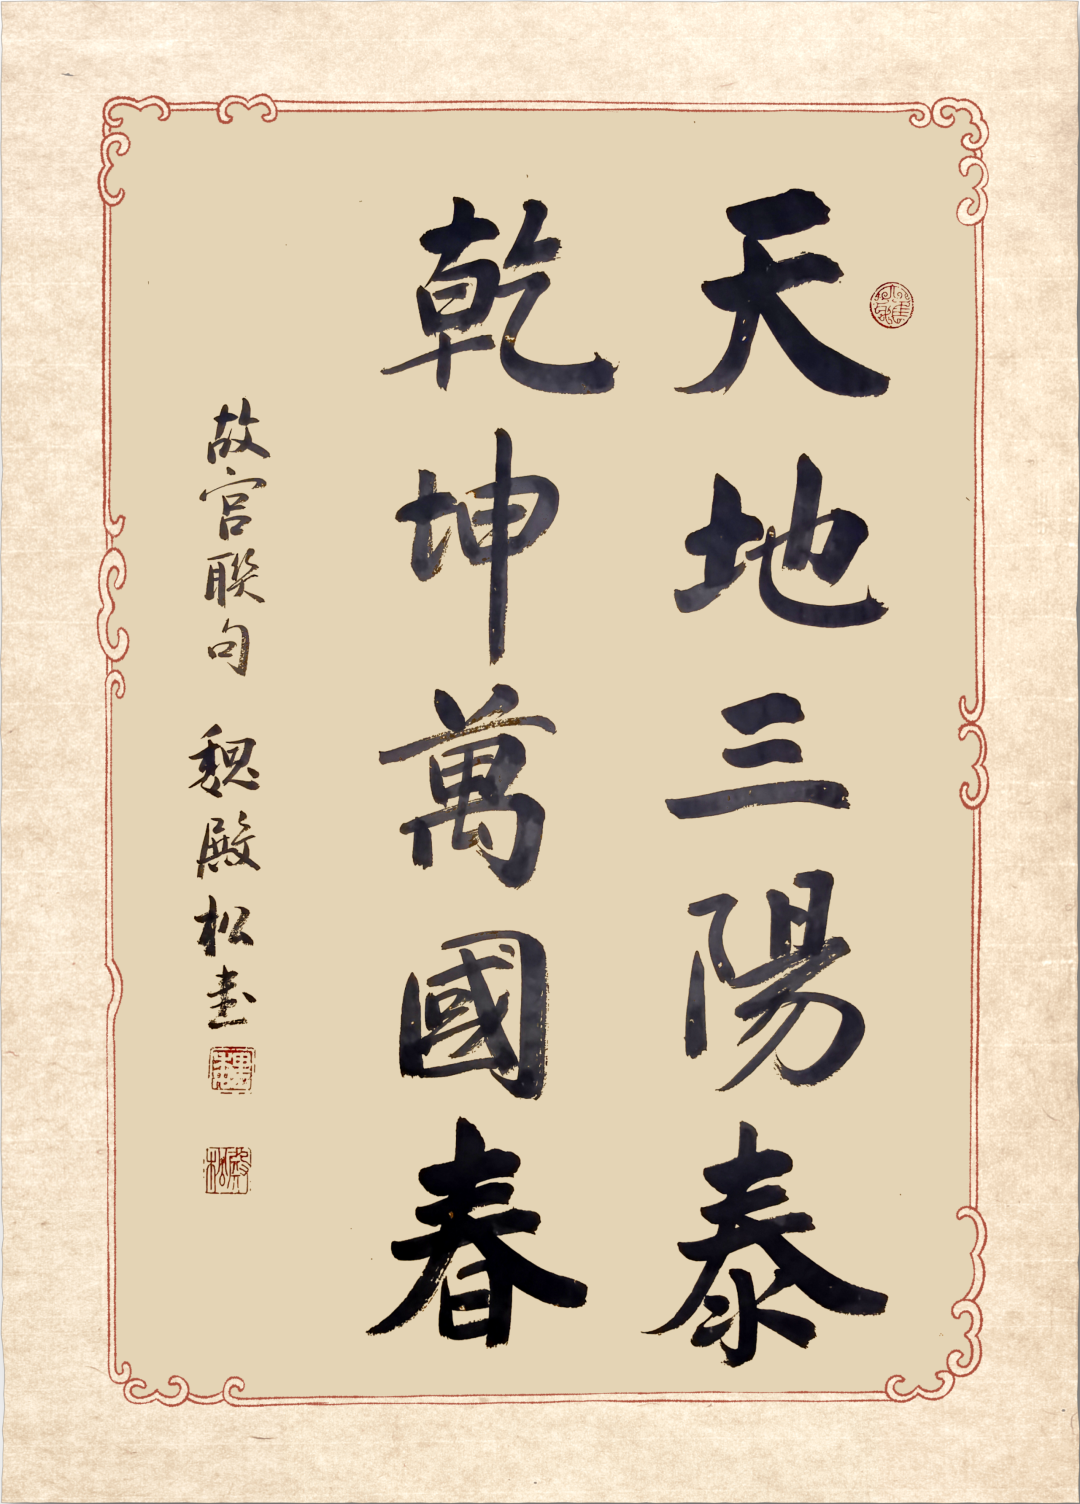 天地三陽泰
乾坤萬國春
故宫聯句 魏殿松書
魏
殿松